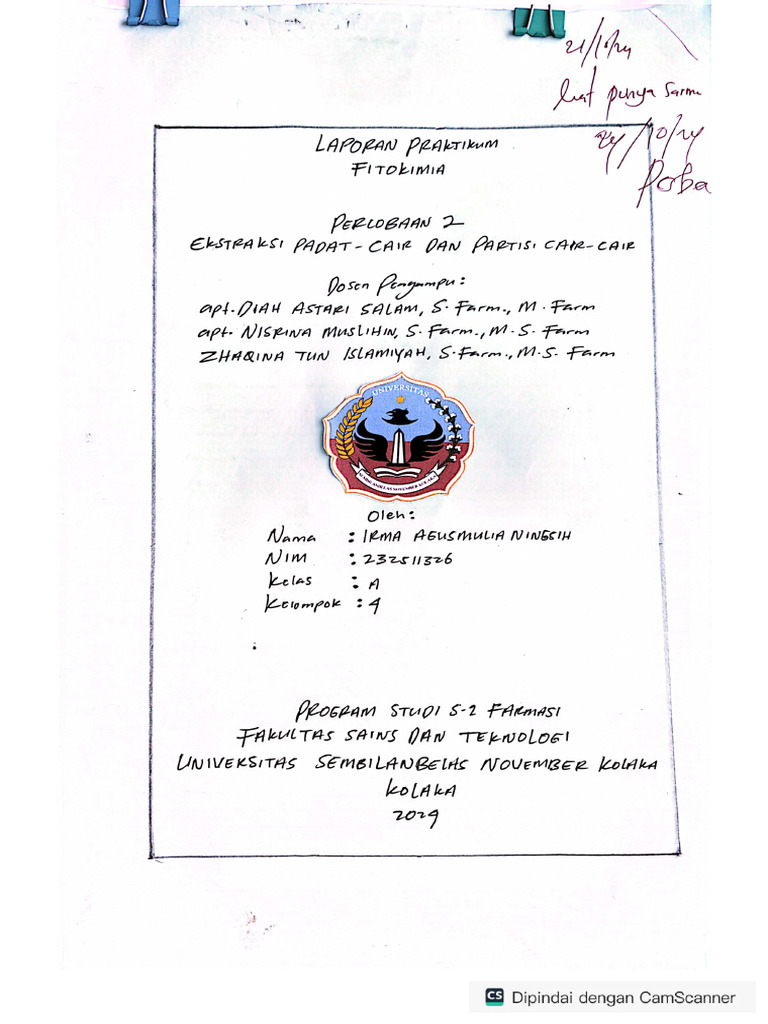 21/10/24
liat punya Sarm
24/10/24
LAPORAN PRAKTIKUM
FITOKIMIA
PERCOBAAN 2
EKSTRAKSI PADAT-CAIR DAN PARTISI CAIR-CAIR
Dosen Pengampu:
apt. DIAH ASTARI SALAM, S. Farm., M. Farm
apt. NISRINA MUSLIHIN, S. Farm., M. S. Farm
ZHAQINA TUN ISLAMIYAH, S. Farm., M. S. Farm
UNIVERSITAS
SEMBILANBELAS NOVEMBER KOLAKA
Oleh:
Nama : IRMA AGUSMULIA NINGSIH
NIM : 232511326
Kelas : A
Kelompok : 4
PROGRAM STUDI S-1 FARMASI
FAKULTAS SAINS DAN TEKNOLOGI
UNIVERSITAS SEMBILANBELAS NOVEMBER KOLAKA
KOLAKA
2024
CS Dipindai dengan CamScanner